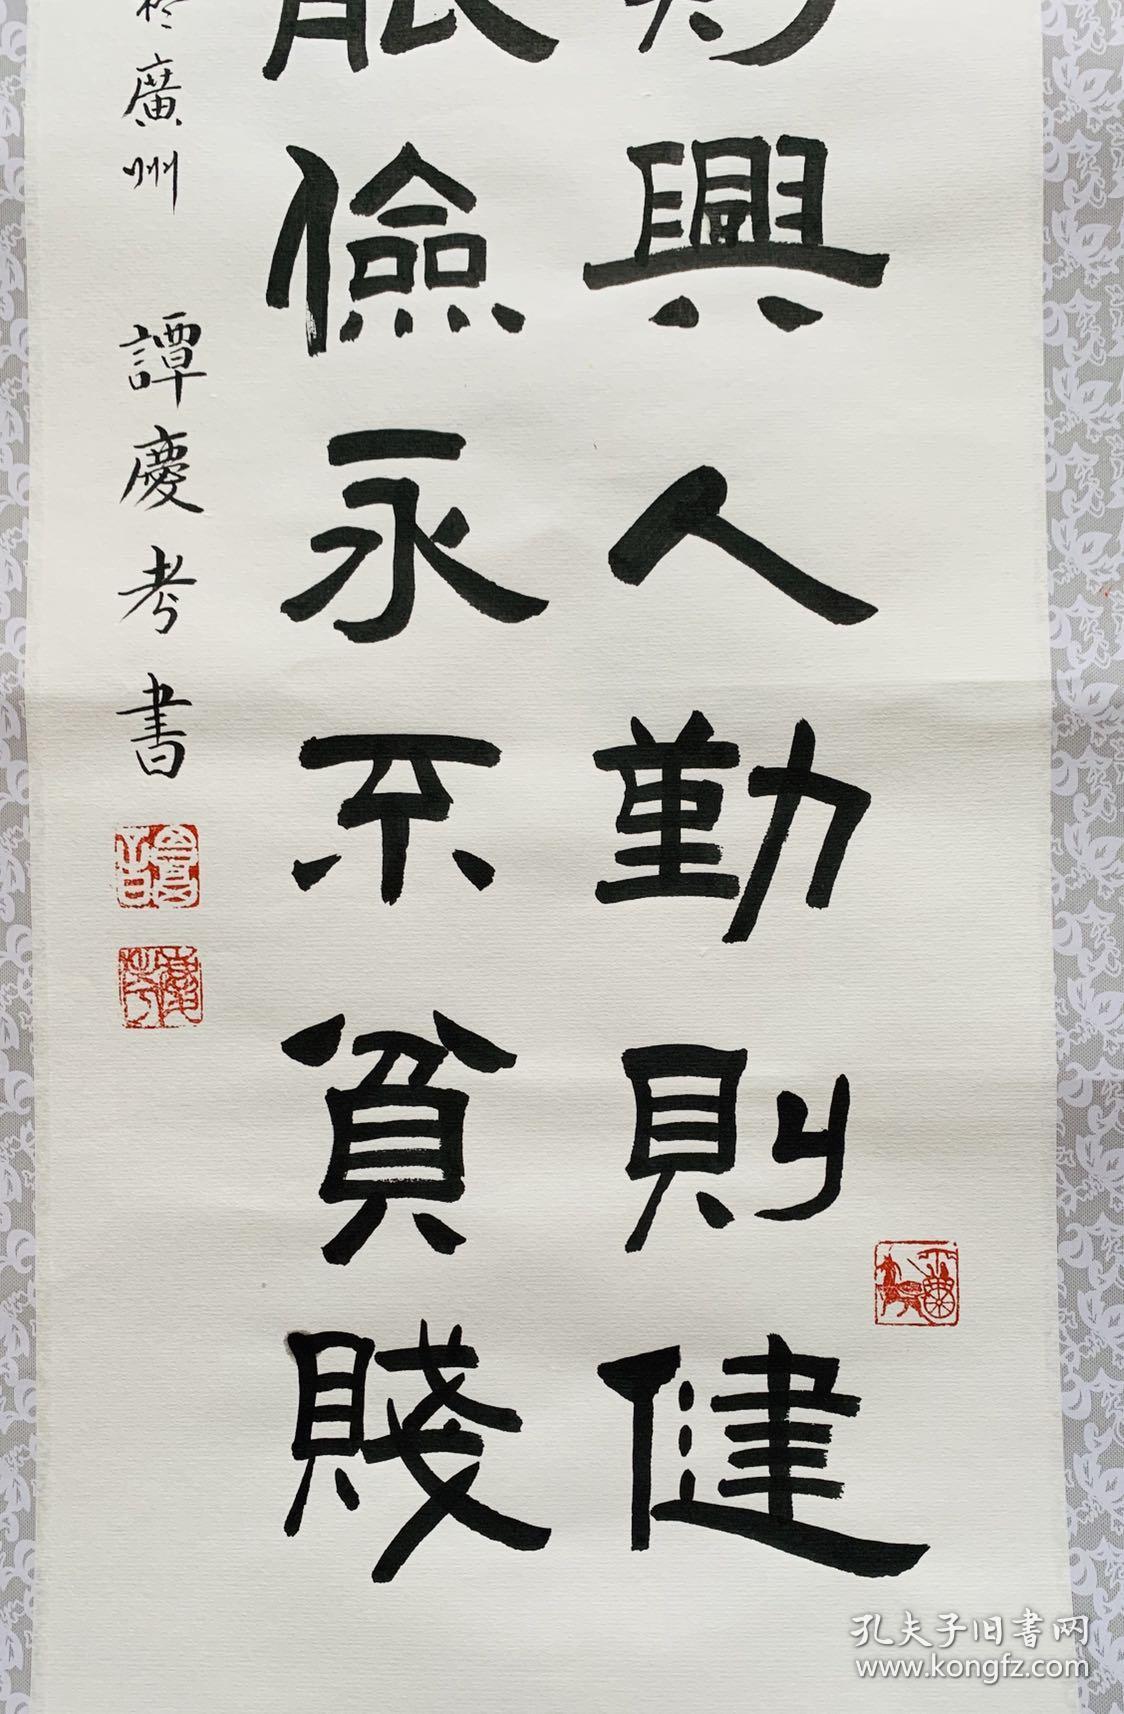 則興人勤則健
能儉永不貧賤
於廣州 譚慶考書
孔夫子旧書网
www.kongfz.com